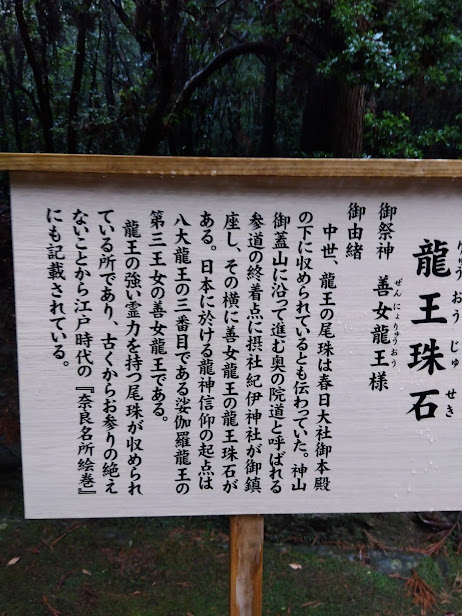 りゅうおうじゅせき
龍王珠石
御祭神　善女龍王様
ぜんにょりゅうおう
御由緒
中世、龍王の尾珠は春日大社御本殿
の下に収められているとも伝わっていた。神山
御蓋山に沿って進む奥の院道と呼ばれる
参道の終着点に摂社紀伊神社が御鎮
座し、その横に善女龍王の龍王珠石が
ある。日本に於ける龍神信仰の起点は
八大龍王の三番目である娑伽羅龍王の
第三王女の善女龍王である。
龍王の強い霊力を持つ尾珠が収められ
ている所であり、古くからお参りの絶え
ないことから江戸時代の『奈良名所絵巻』
にも記載されている。